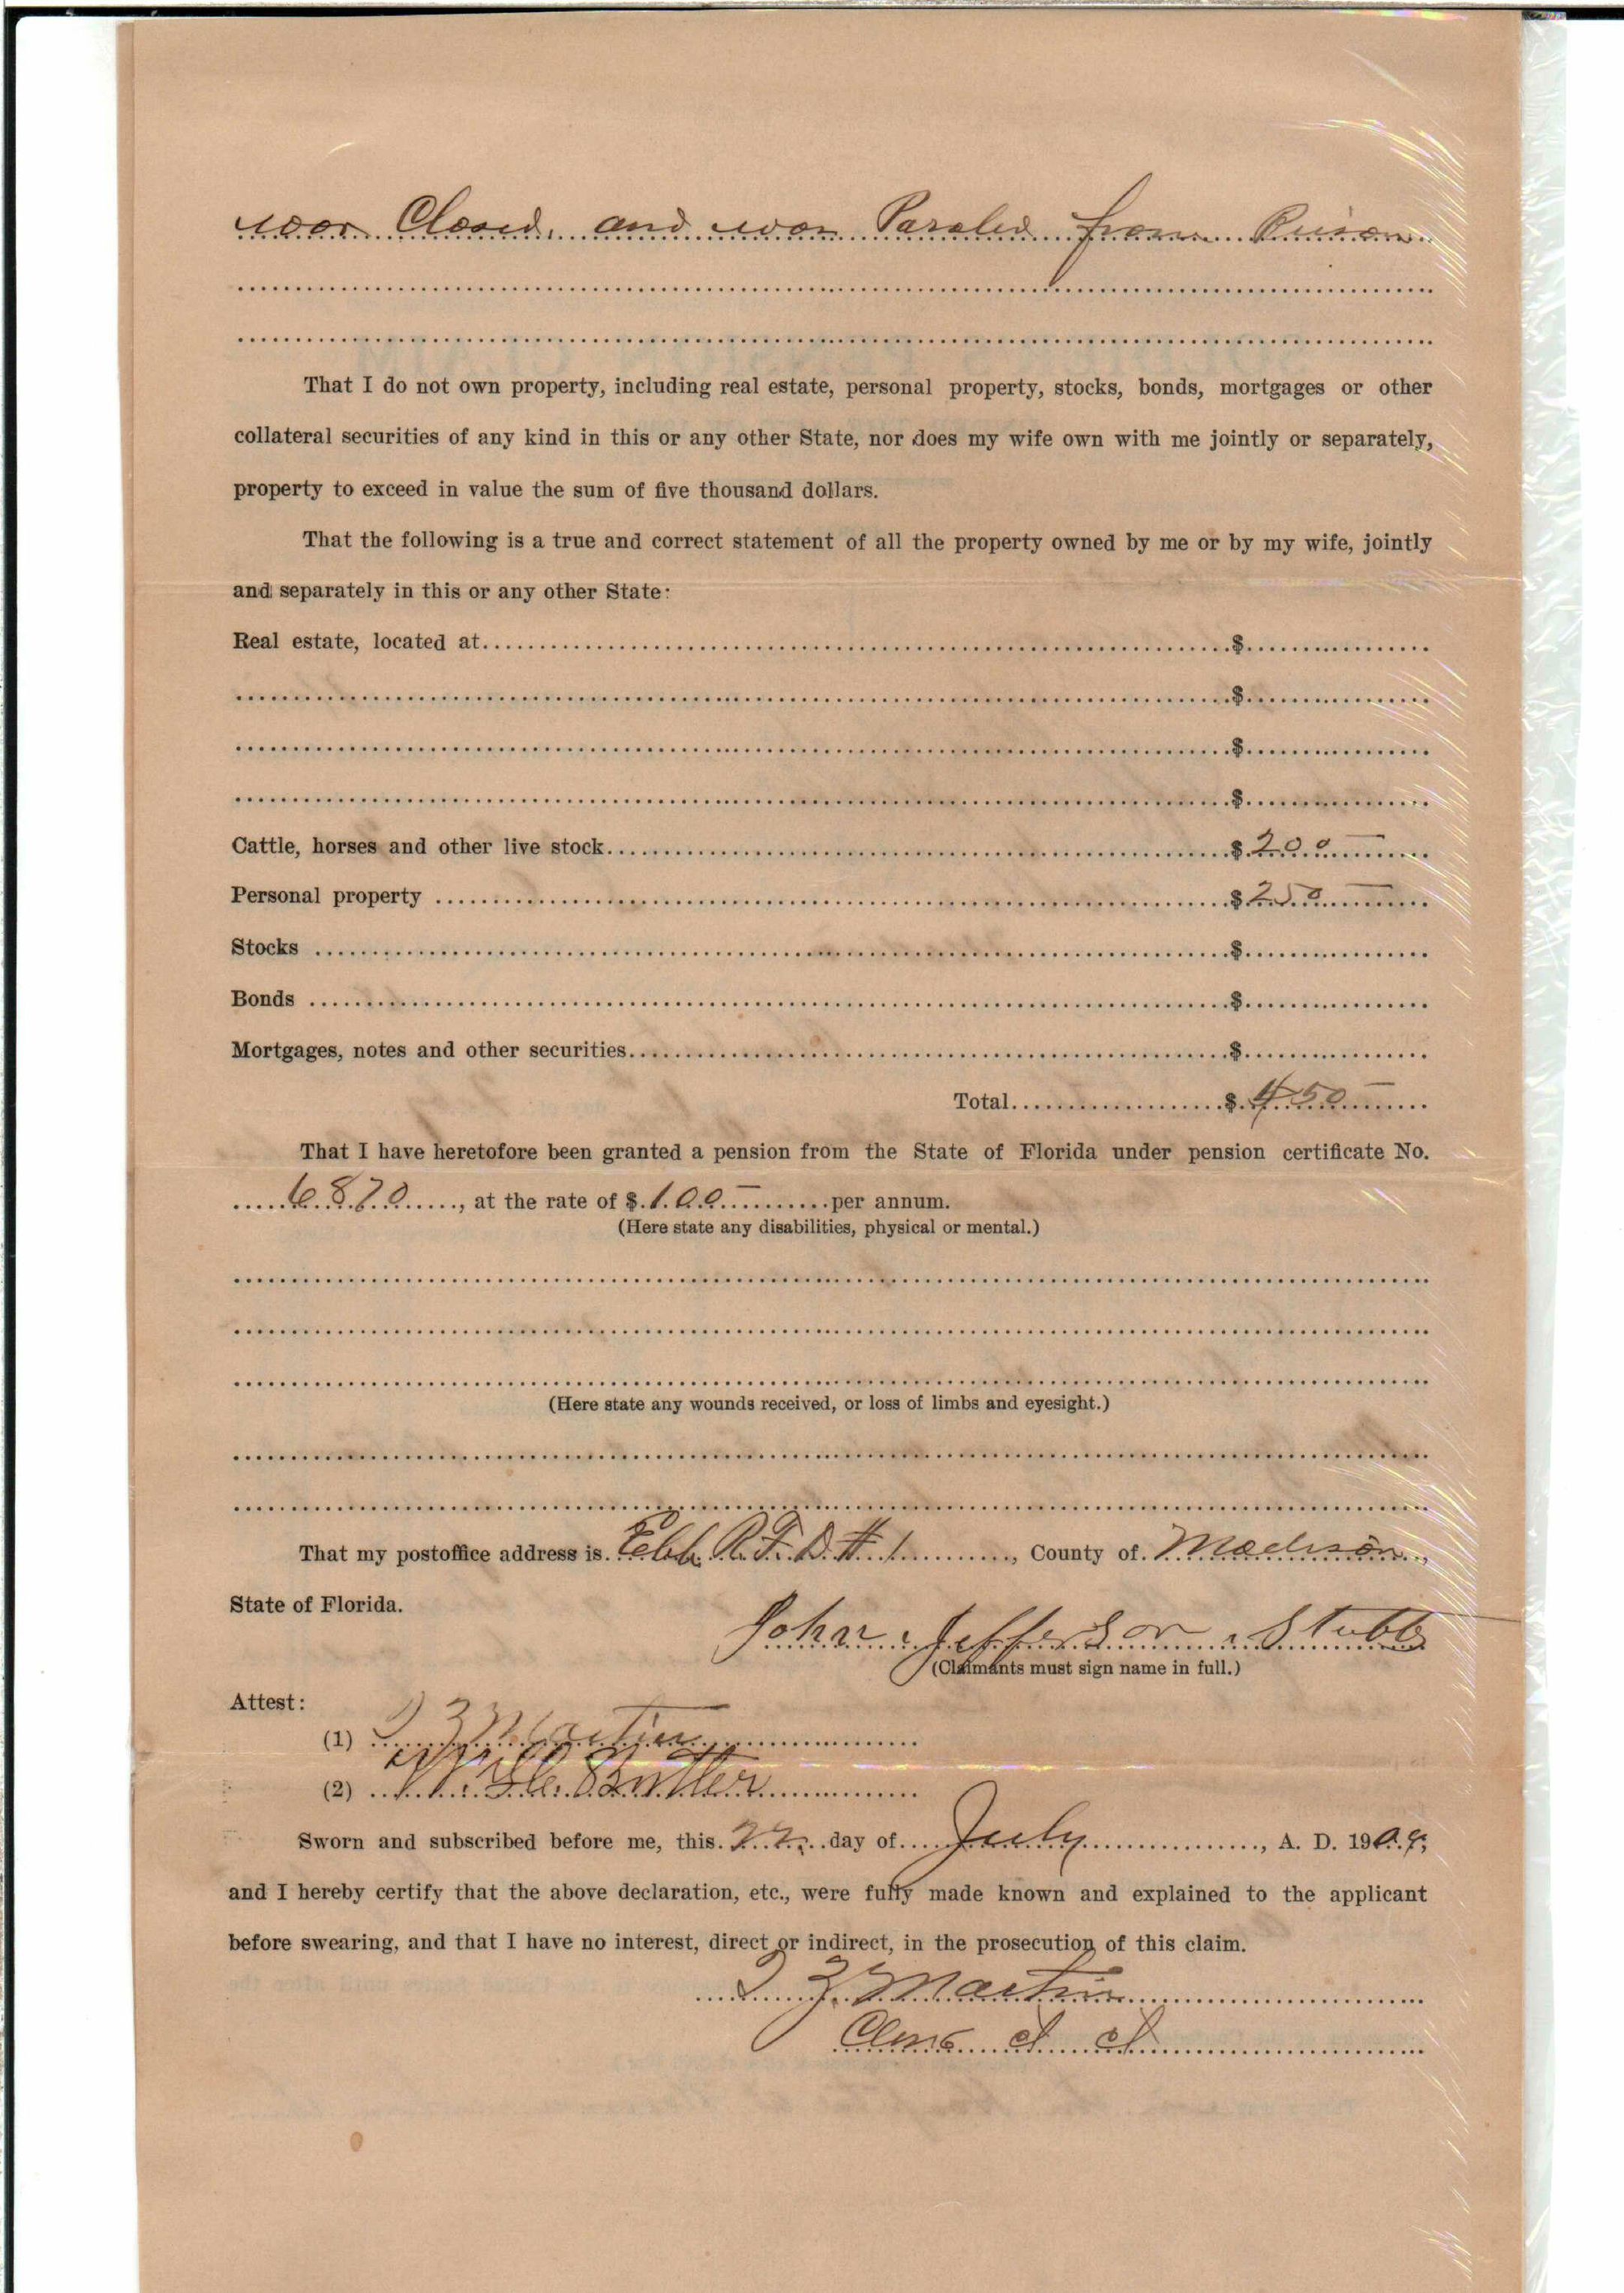 war Closed, and was Paroled from Prison
That I do not own property, including real estate, personal property, stocks, bonds, mortgages or other
collateral securities of any kind in this or any other State, nor does my wife own with me jointly or separately,
property to exceed in value the sum of five thousand dollars.
That the following is a true and correct statement of all the property owned by me or by my wife, jointly
and separately in this or any other State:
Real estate, located at $
$
$
$
Cattle, horses and other live stock $ 200
Personal property $ 250
Stocks $
Bonds $
Mortgages, notes and other securities $
Total $ 450
That I have heretofore been granted a pension from the State of Florida under pension certificate No.
6870, at the rate of $ 100 per annum.
(Here state any disabilities, physical or mental.)
(Here state any wounds received, or loss of limbs and eyesight.)
That my postoffice address is Ebb R.F.D. # 1, County of Madison,
State of Florida.
John Jefferson Stubbs
(Claimants must sign name in full.)
Attest:
(1) Martin
(2) Butler
Sworn and subscribed before me, this 22 day of July, A. D. 1909,
and I hereby certify that the above declaration, etc., were fully made known and explained to the applicant
before swearing, and that I have no interest, direct or indirect, in the prosecution of this claim.
Martin